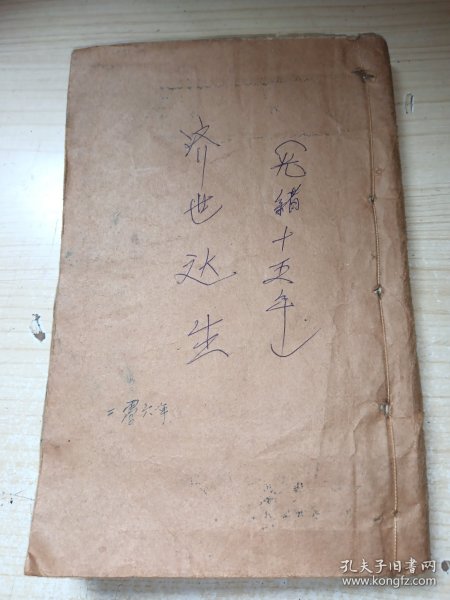 （光绪十五年）
济世达生
二零零六年
孔夫子旧书网
www.kongfz.com